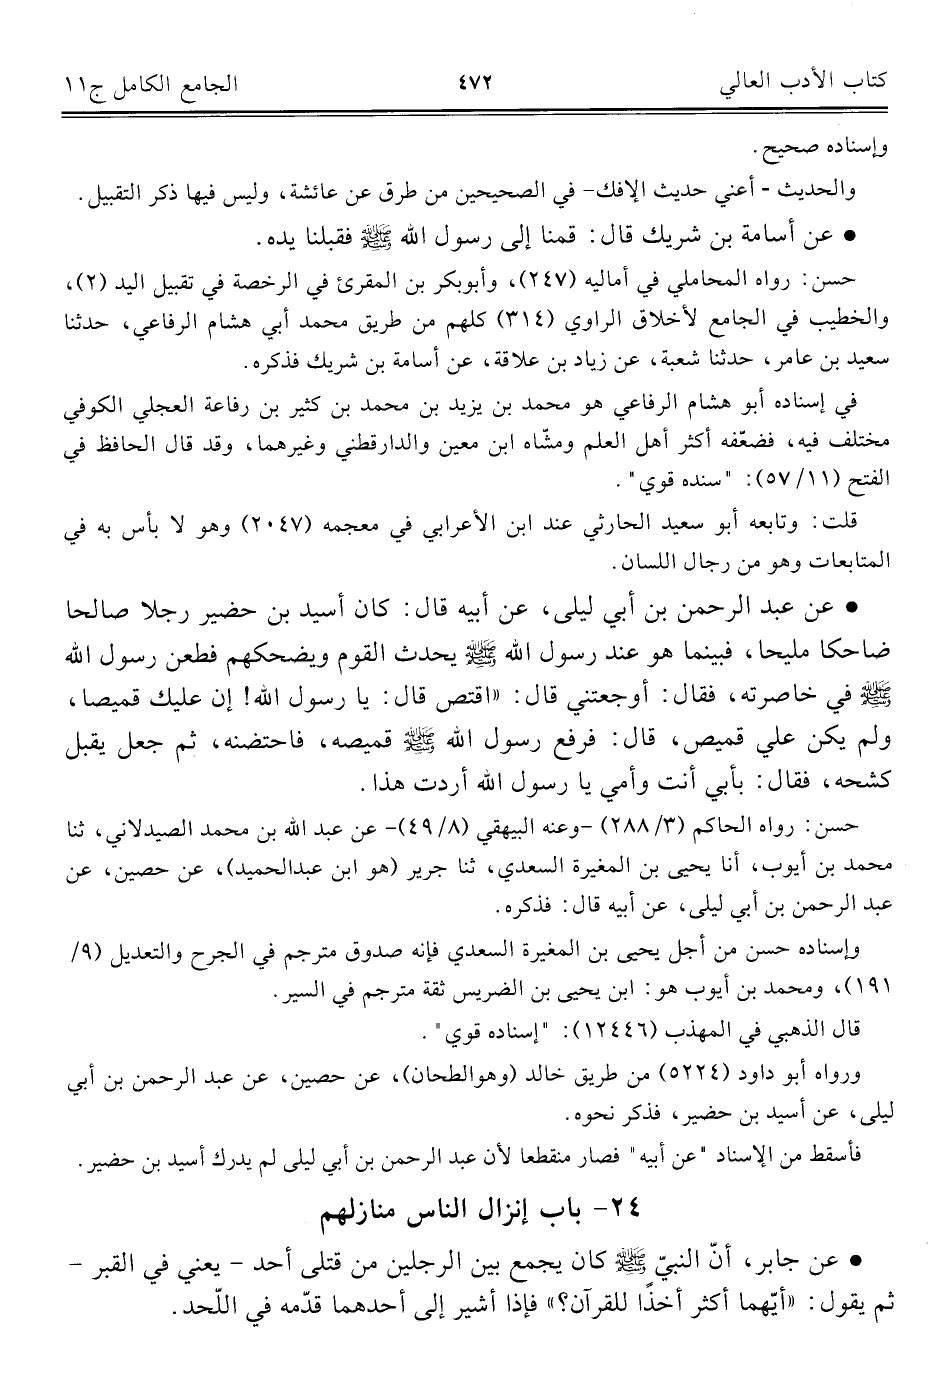 كتاب الأدب العالي ٤٧٢ الجامع الكامل ج١١
وإسناده صحيح.
والحديث - أعني حديث الإفك- في الصحيحين من طرق عن عائشة، وليس فيها ذكر التقبيل.
● عن أسامة بن شريك قال: قمنا إلى رسول الله ﷺ فقبلنا يده.
حسن: رواه المحاملي في أماليه (٢٤٧)، وأبوبكر بن المقرئ في الرخصة في تقبيل اليد (٢)،
والخطيب في الجامع لأخلاق الراوي (٣١٤) كلهم من طريق محمد أبي هشام الرفاعي، حدثنا
سعيد بن عامر، حدثنا شعبة، عن زياد بن علاقة، عن أسامة بن شريك فذكره.
في إسناده أبو هشام الرفاعي هو محمد بن يزيد بن محمد بن كثير بن رفاعة العجلي الكوفي
مختلف فيه، فضعّفه أكثر أهل العلم ومشّاه ابن معين والدارقطني وغيرهما، وقد قال الحافظ في
الفتح (١١/ ٥٧): "سنده قوي".
قلت: وتابعه أبو سعيد الحارثي عند ابن الأعرابي في معجمه (٢٠٤٧) وهو لا بأس به في
المتابعات وهو من رجال اللسان.
● عن عبد الرحمن بن أبي ليلى، عن أبيه قال: كان أسيد بن حضير رجلا صالحا
ضاحكا مليحا، فبينما هو عند رسول الله ﷺ يحدث القوم ويضحكهم فطعن رسول الله
ﷺ في خاصرته، فقال: أوجعتني قال: «اقتص قال: يا رسول الله! إن عليك قميصا،
ولم يكن علي قميص، قال: فرفع رسول الله ﷺ قميصه، فاحتضنه، ثم جعل يقبل
كشحه، فقال: بأبي أنت وأمي يا رسول الله أردت هذا.
حسن: رواه الحاكم (٣/ ٢٨٨) -وعنه البيهقي (٨/ ٤٩)- عن عبد الله بن محمد الصيدلاني، ثنا
محمد بن أيوب، أنا يحيى بن المغيرة السعدي، ثنا جرير (هو ابن عبدالحميد)، عن حصين، عن
عبد الرحمن بن أبي ليلى، عن أبيه قال: فذكره.
وإسناده حسن من أجل يحيى بن المغيرة السعدي فإنه صدوق مترجم في الجرح والتعديل (٩/
١٩١)، ومحمد بن أيوب هو: ابن يحيى بن الضريس ثقة مترجم في السير.
قال الذهبي في المهذب (١٢٤٤٦): "إسناده قوي".
ورواه أبو داود (٥٢٢٤) من طريق خالد (وهوالطحان)، عن حصين، عن عبد الرحمن بن أبي
ليلى، عن أسيد بن حضير، فذكر نحوه.
فأسقط من الإسناد "عن أبيه" فصار منقطعا لأن عبد الرحمن بن أبي ليلى لم يدرك أسيد بن حضير.
٢٤- باب إنزال الناس منازلهم
● عن جابر، أنّ النبيّ ﷺ كان يجمع بين الرجلين من قتلى أحد - يعني في القبر -
ثم يقول: «أيّهما أكثر أخذًا للقرآن؟» فإذا أشير إلى أحدهما قدّمه في اللّحد.